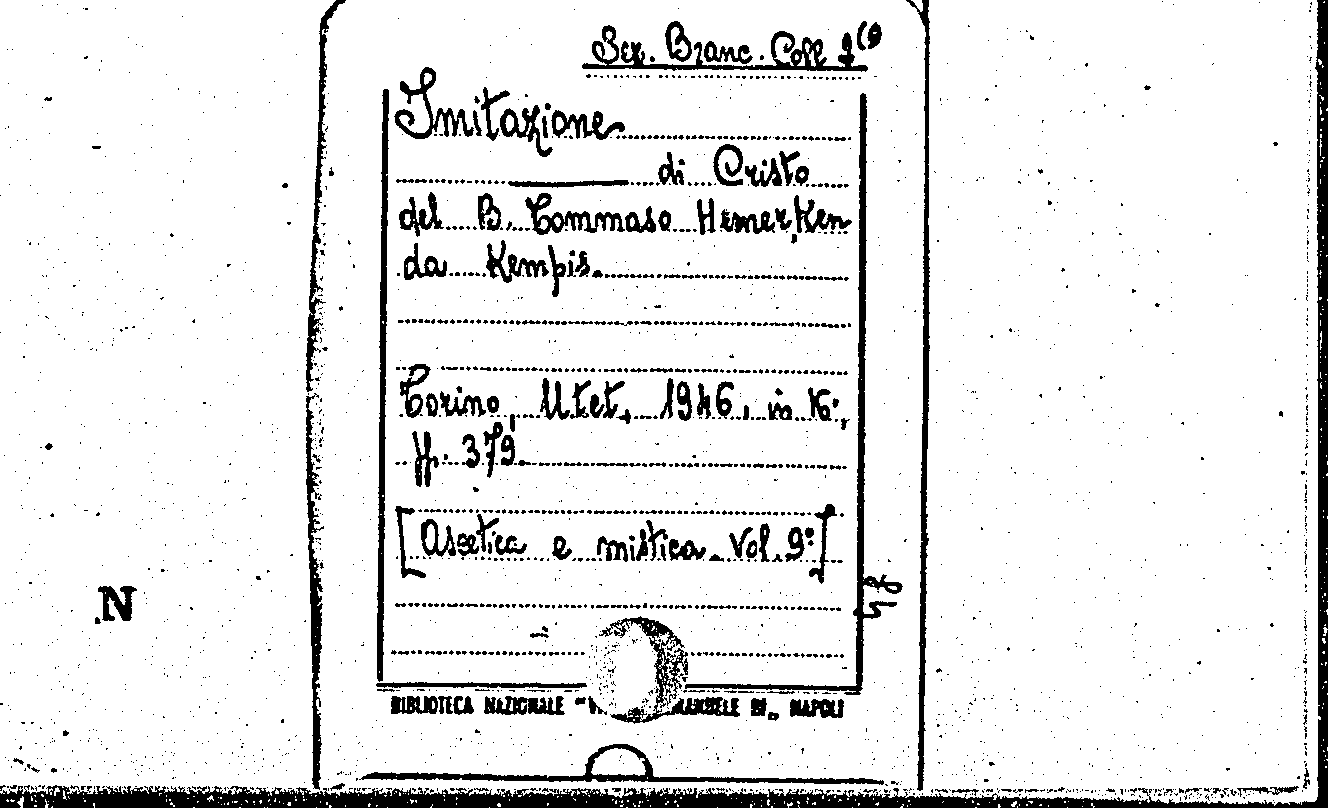 Sez. Branc. Coll 9(9
Imitazione
di Cristo
del B. Tommaso Hemerken
da Kempis.
Torino, Utet, 1946, in 16°,
pp. 379.
[Ascetica e mistica. Vol. 9°]
N
BIBLIOTECA NAZIONALE " III„ NAPOLI